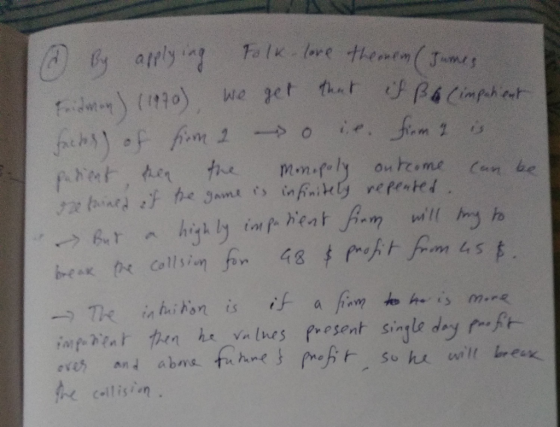 (d) By applying Folk-lore theorem (James
Fridman) (1970), we get that if β (impatient
factor) of firm 1 → 0 i.e. firm 1 is
patient, then the monopoly outcome can be
retained if the game is infinitely repeated.
→ But a highly impatient firm will try to
break the collsion for 48 $ profit from 45 $.
→ The intuition is if a firm is more
impatient then he values present single day profit
over and above future's profit, so he will break
the collision.